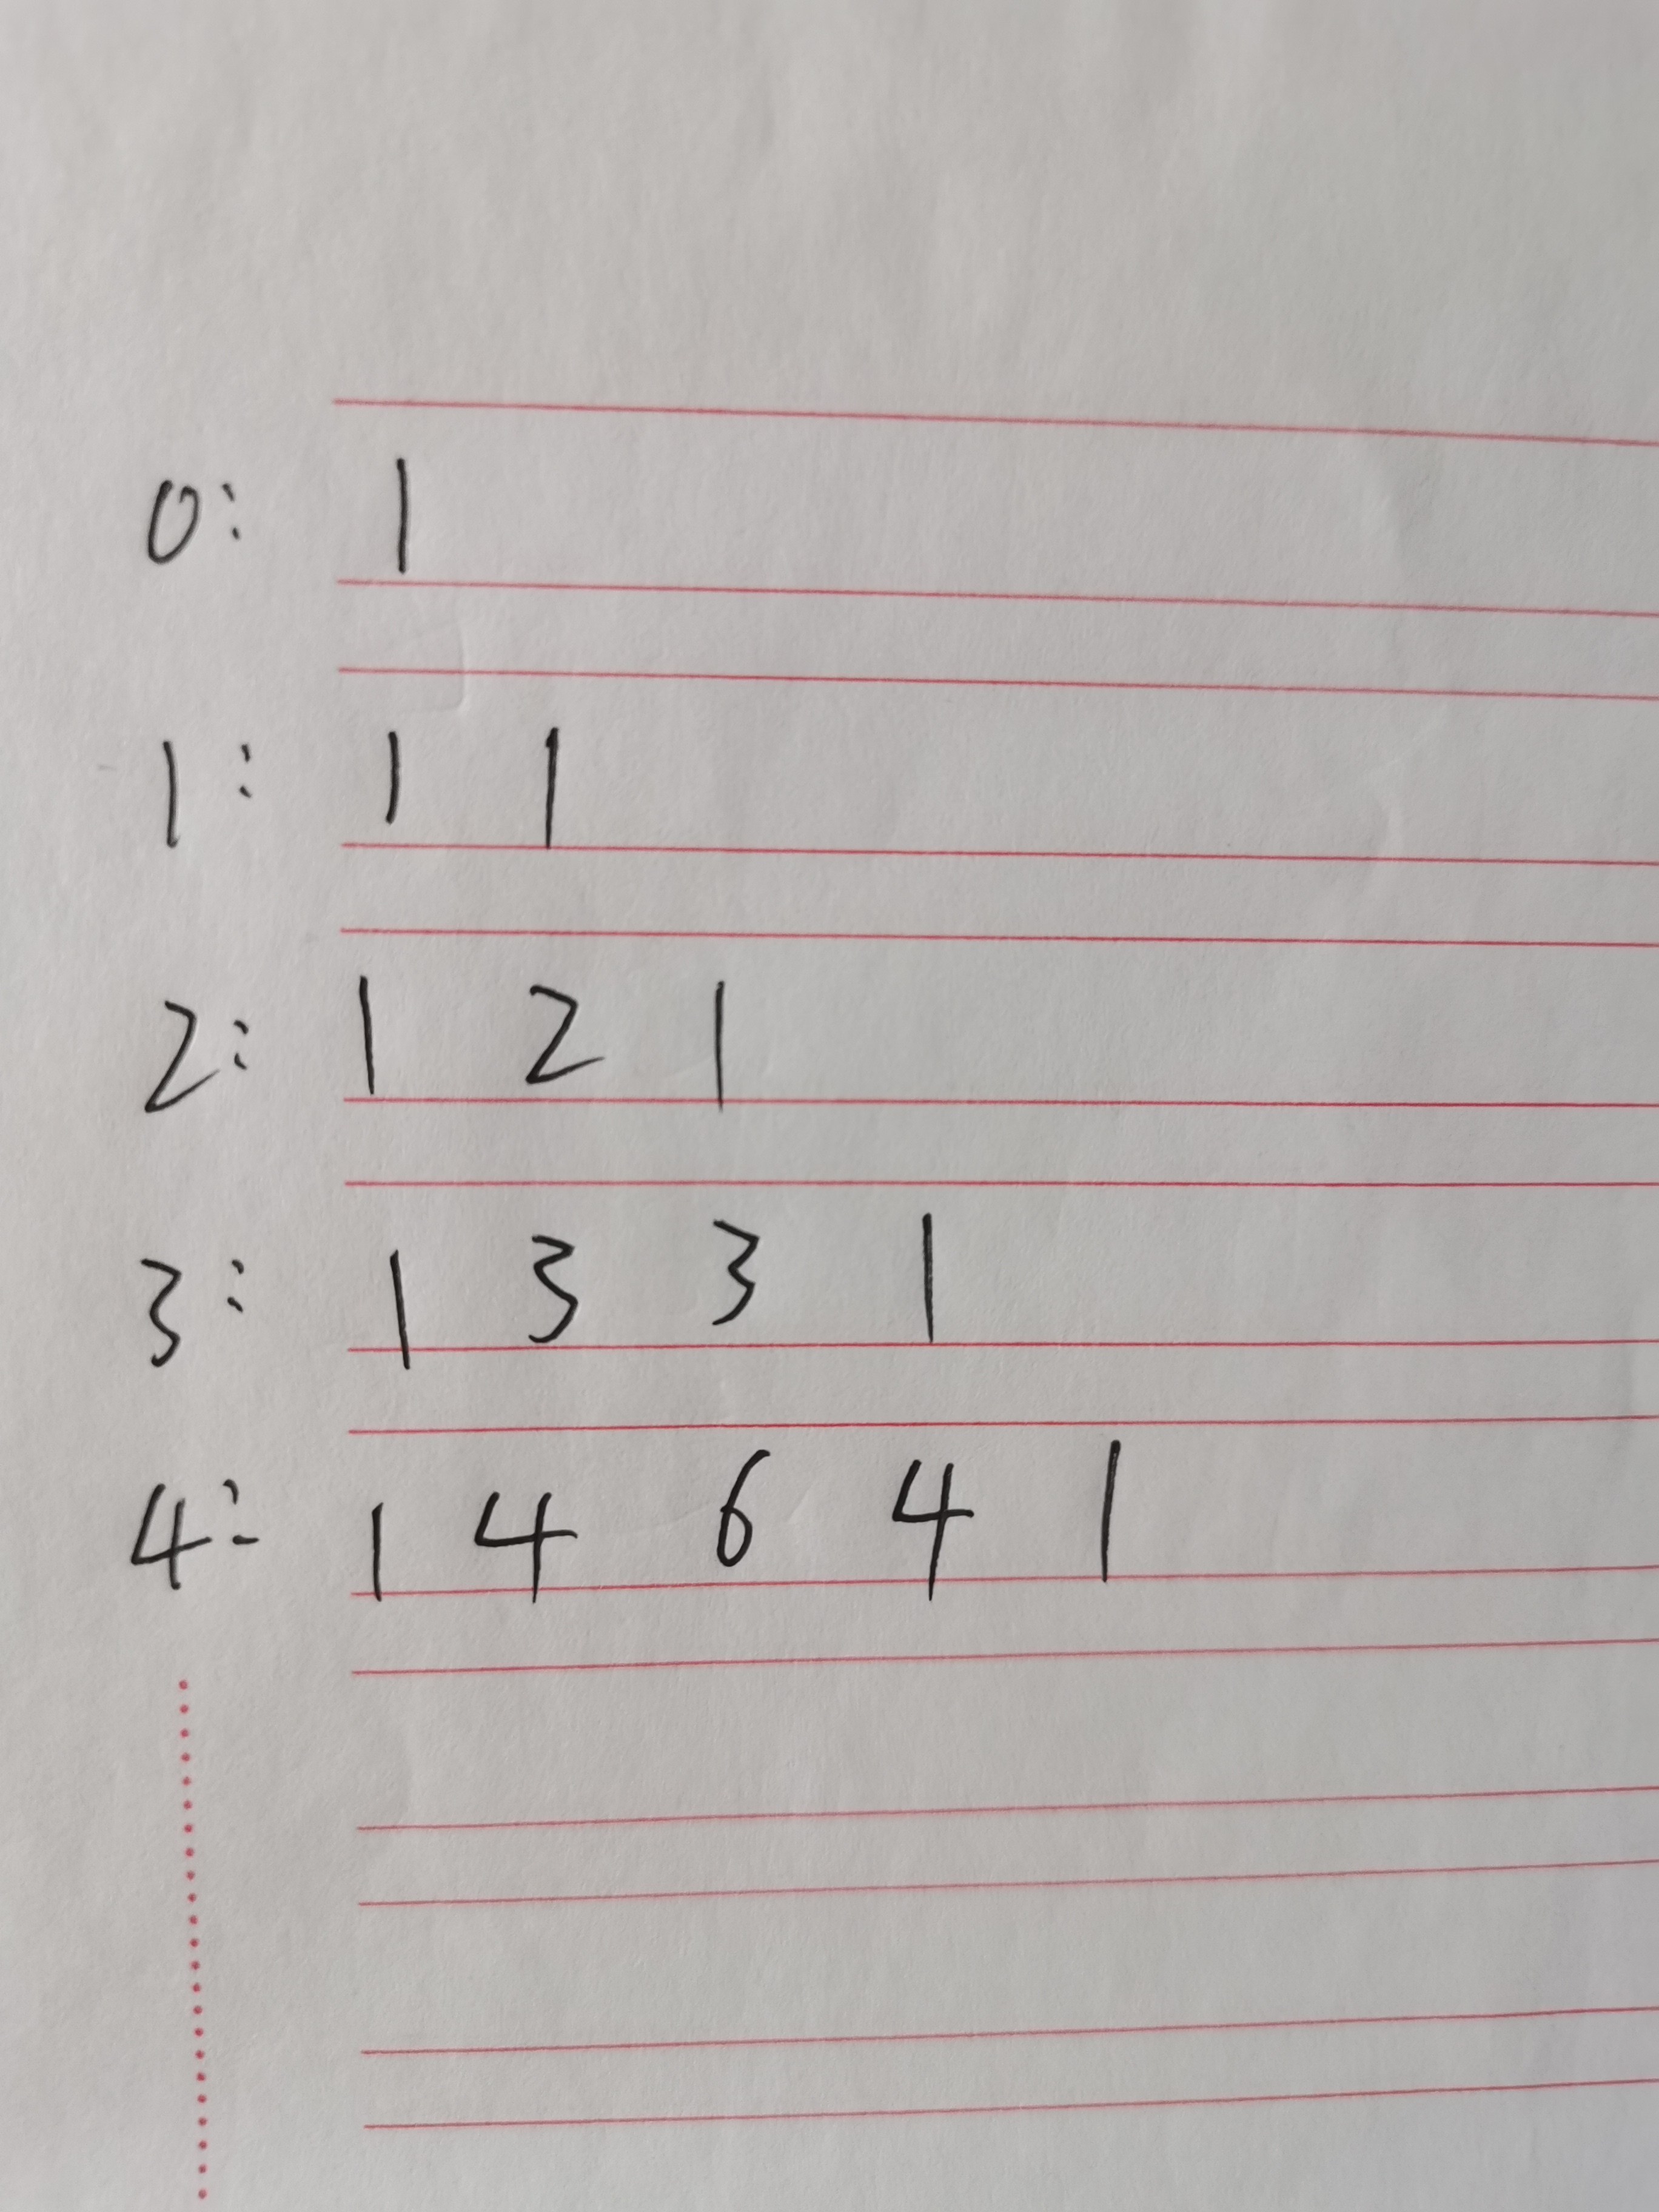 0: 1
1: 1 1
2: 1 2 1
3: 1 3 3 1
4: 1 4 6 4 1